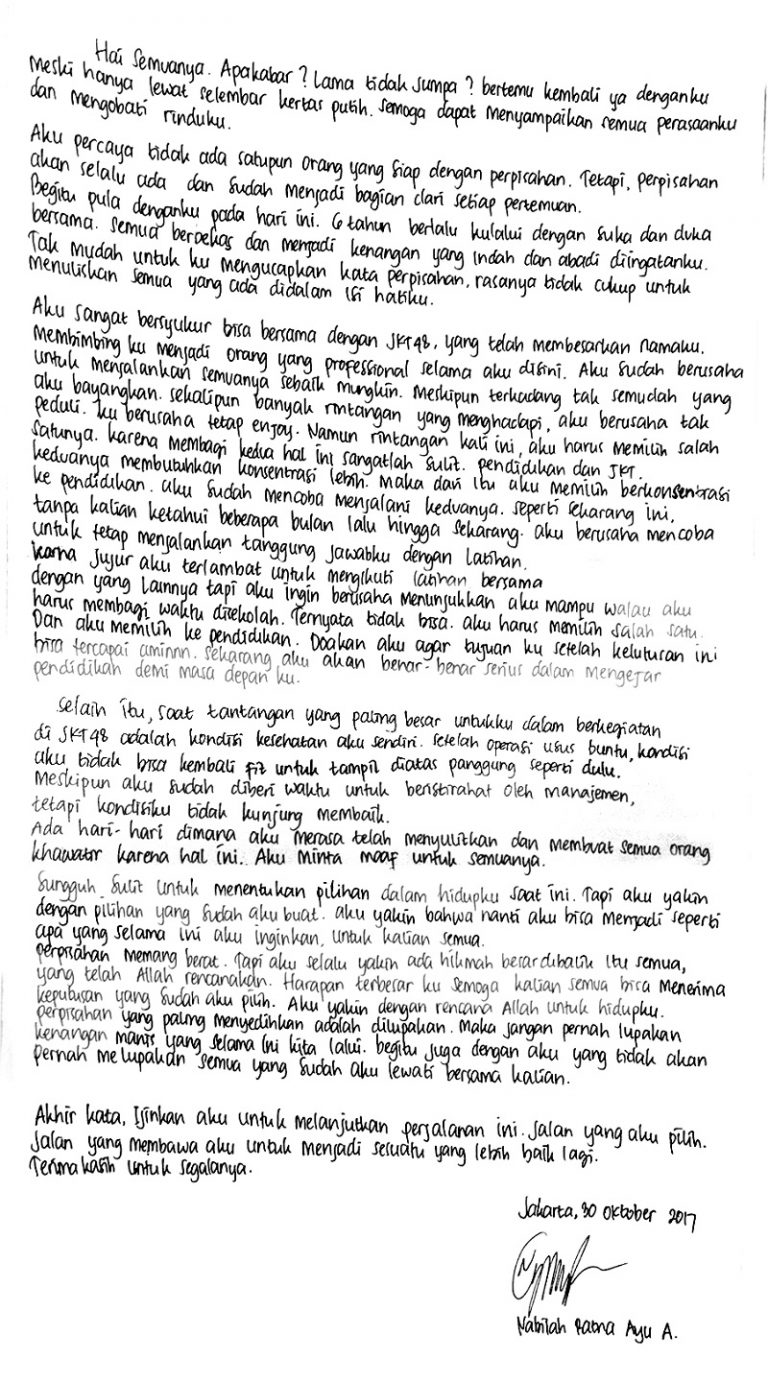 Hai Semuanya. Apakabar? Lama tidak jumpa? bertemu kembali ya denganku
Meski hanya lewat selembar kertas putih. Semoga dapat menyampaikan semua perasaanku
dan mengobati rinduku.
Aku percaya tidak ada satupun orang yang siap dengan perpisahan. Tetapi, perpisahan
akan selalu ada dan sudah menjadi bagian dari setiap pertemuan.
Begitu pula denganku pada hari ini. 6 tahun berlalu kulalui dengan suka dan duka
bersama. Semua berbekas dan menjadi kenangan yang indah dan abadi diingatanku.
Tak mudah untuk ku mengucapkan kata perpisahan, rasanya tidak cukup untuk
menuliskan semua yang ada didalam isi hatiku.
Aku sangat bersyukur bisa bersama dengan JKT48, yang telah membesarkan namaku.
Membimbing ku menjadi orang yang professional selama aku disini. Aku sudah berusaha
untuk menjalankan semuanya sebaik mungkin. Meskipun terkadang tak semudah yang
aku bayangkan. Sekalipun banyak rintangan yang menghadapi, aku berusaha tak
peduli. ku berusaha tetap enjoy. Namun rintangan kali ini, aku harus memilih salah
satunya. karena membagi kedua hal ini sangatlah sulit. pendidikan dan JKT.
keduanya membutuhkan konsentrasi lebih. Maka dari itu aku memilih berkonsentrasi
ke pendidikan. aku sudah mencoba menjalani keduanya. seperti sekarang ini,
tanpa kalian ketahui beberapa bulan lalu hingga sekarang. aku berusaha mencoba
untuk tetap menjalankan tanggung jawabku dengan latihan.
karna jujur aku terlambat untuk mengikuti latihan bersama
dengan yang lainnya tapi aku ingin berusaha menunjukkan aku mampu walau aku
harus membagi waktu disekolah. Ternyata tidak bisa. aku harus memilih salah satu.
Dan aku memilih ke pendidikan. Doakan aku agar tujuan ku setelah kelulusan ini
bisa tercapai aminnn. sekarang aku akan benar-benar serius dalam mengejar
pendidikan demi masa depan ku.
Selain itu, saat tantangan yang paling besar untukku dalam berkegiatan
di JKT48 adalah kondisi kesehatan aku sendiri. setelah operasi usus buntu, kondisi
aku tidak bisa kembali fit untuk tampil diatas panggung seperti dulu.
Meskipun aku sudah diberi waktu untuk beristirahat oleh manajemen,
tetapi kondisiku tidak kunjung membaik.
Ada hari-hari dimana aku merasa telah menyulitkan dan membuat semua orang
khawatir karena hal ini. Aku minta maaf untuk semuanya.
Sungguh sulit untuk menentukan pilihan dalam hidupku saat ini. Tapi aku yakin
dengan pilihan yang sudah aku buat. aku yakin bahwa nanti aku bisa menjadi seperti
apa yang selama ini aku inginkan, untuk kalian semua.
perpisahan memang berat. Tapi aku selalu yakin ada hikmah besar dibalik itu semua,
yang telah Allah rencanakan. Harapan terbesar ku semoga kalian semua bisa menerima
keputusan yang sudah aku pilih. Aku yakin dengan rencana Allah untuk hidupku.
perpisahan yang paling menyedihkan adalah dilupakan. Maka jangan pernah lupakan
kenangan manis yang selama ini kita lalui. begitu juga dengan aku yang tidak akan
pernah melupakan semua yang sudah aku lewati bersama kalian.
Akhir kata, Ijinkan aku untuk melanjutkan perjalanan ini. Jalan yang aku pilih.
Jalan yang membawa aku untuk menjadi sesuatu yang lebih baik lagi.
Terima kasih untuk segalanya.
Jakarta, 30 Oktober 2017
Nabilah Ratna Ayu A.